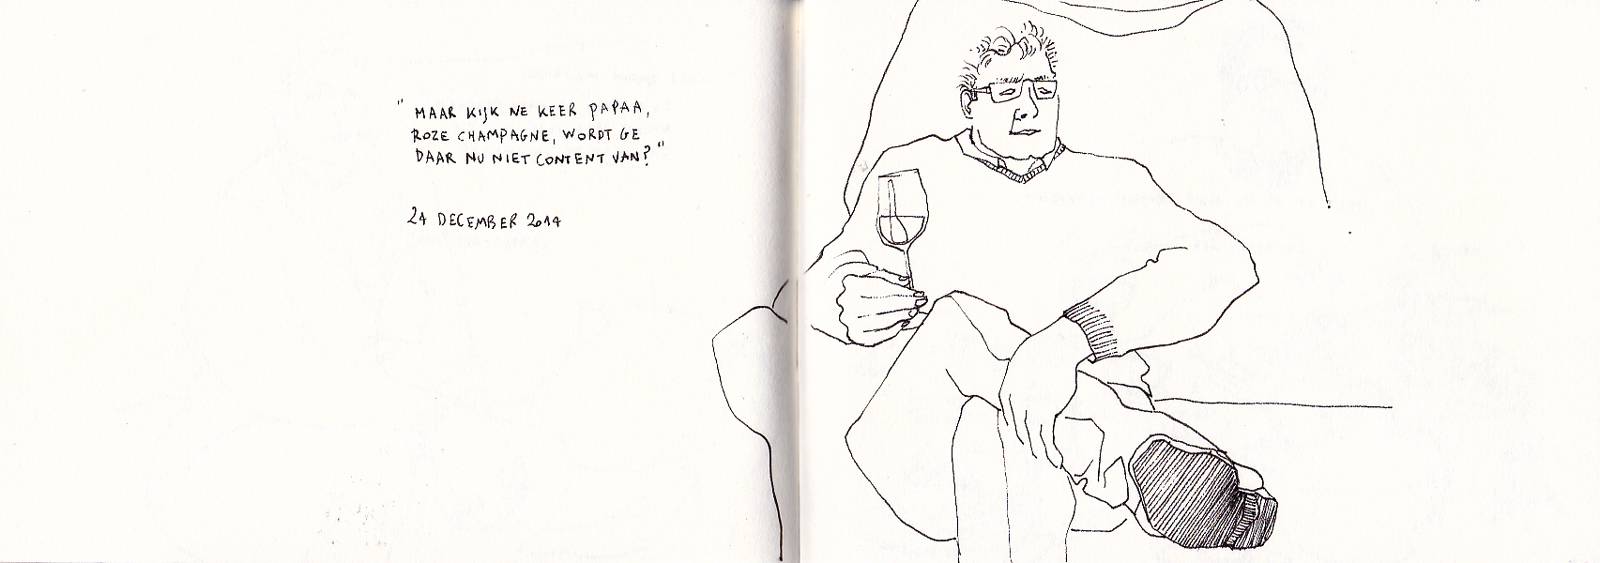 "MAAR KIJK NE KEER PAPAA,
ROZE CHAMPAGNE, WORDT GE
DAAR NU NIET CONTENT VAN?"
24 DECEMBER 2014